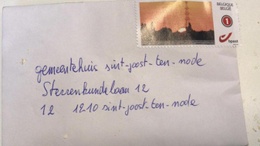 BELGIQUE
BELGIË
1
gemeentehuis sint-joost-ten-node
Sterrenkundelaan 12
1210 sint-joost-ten-node